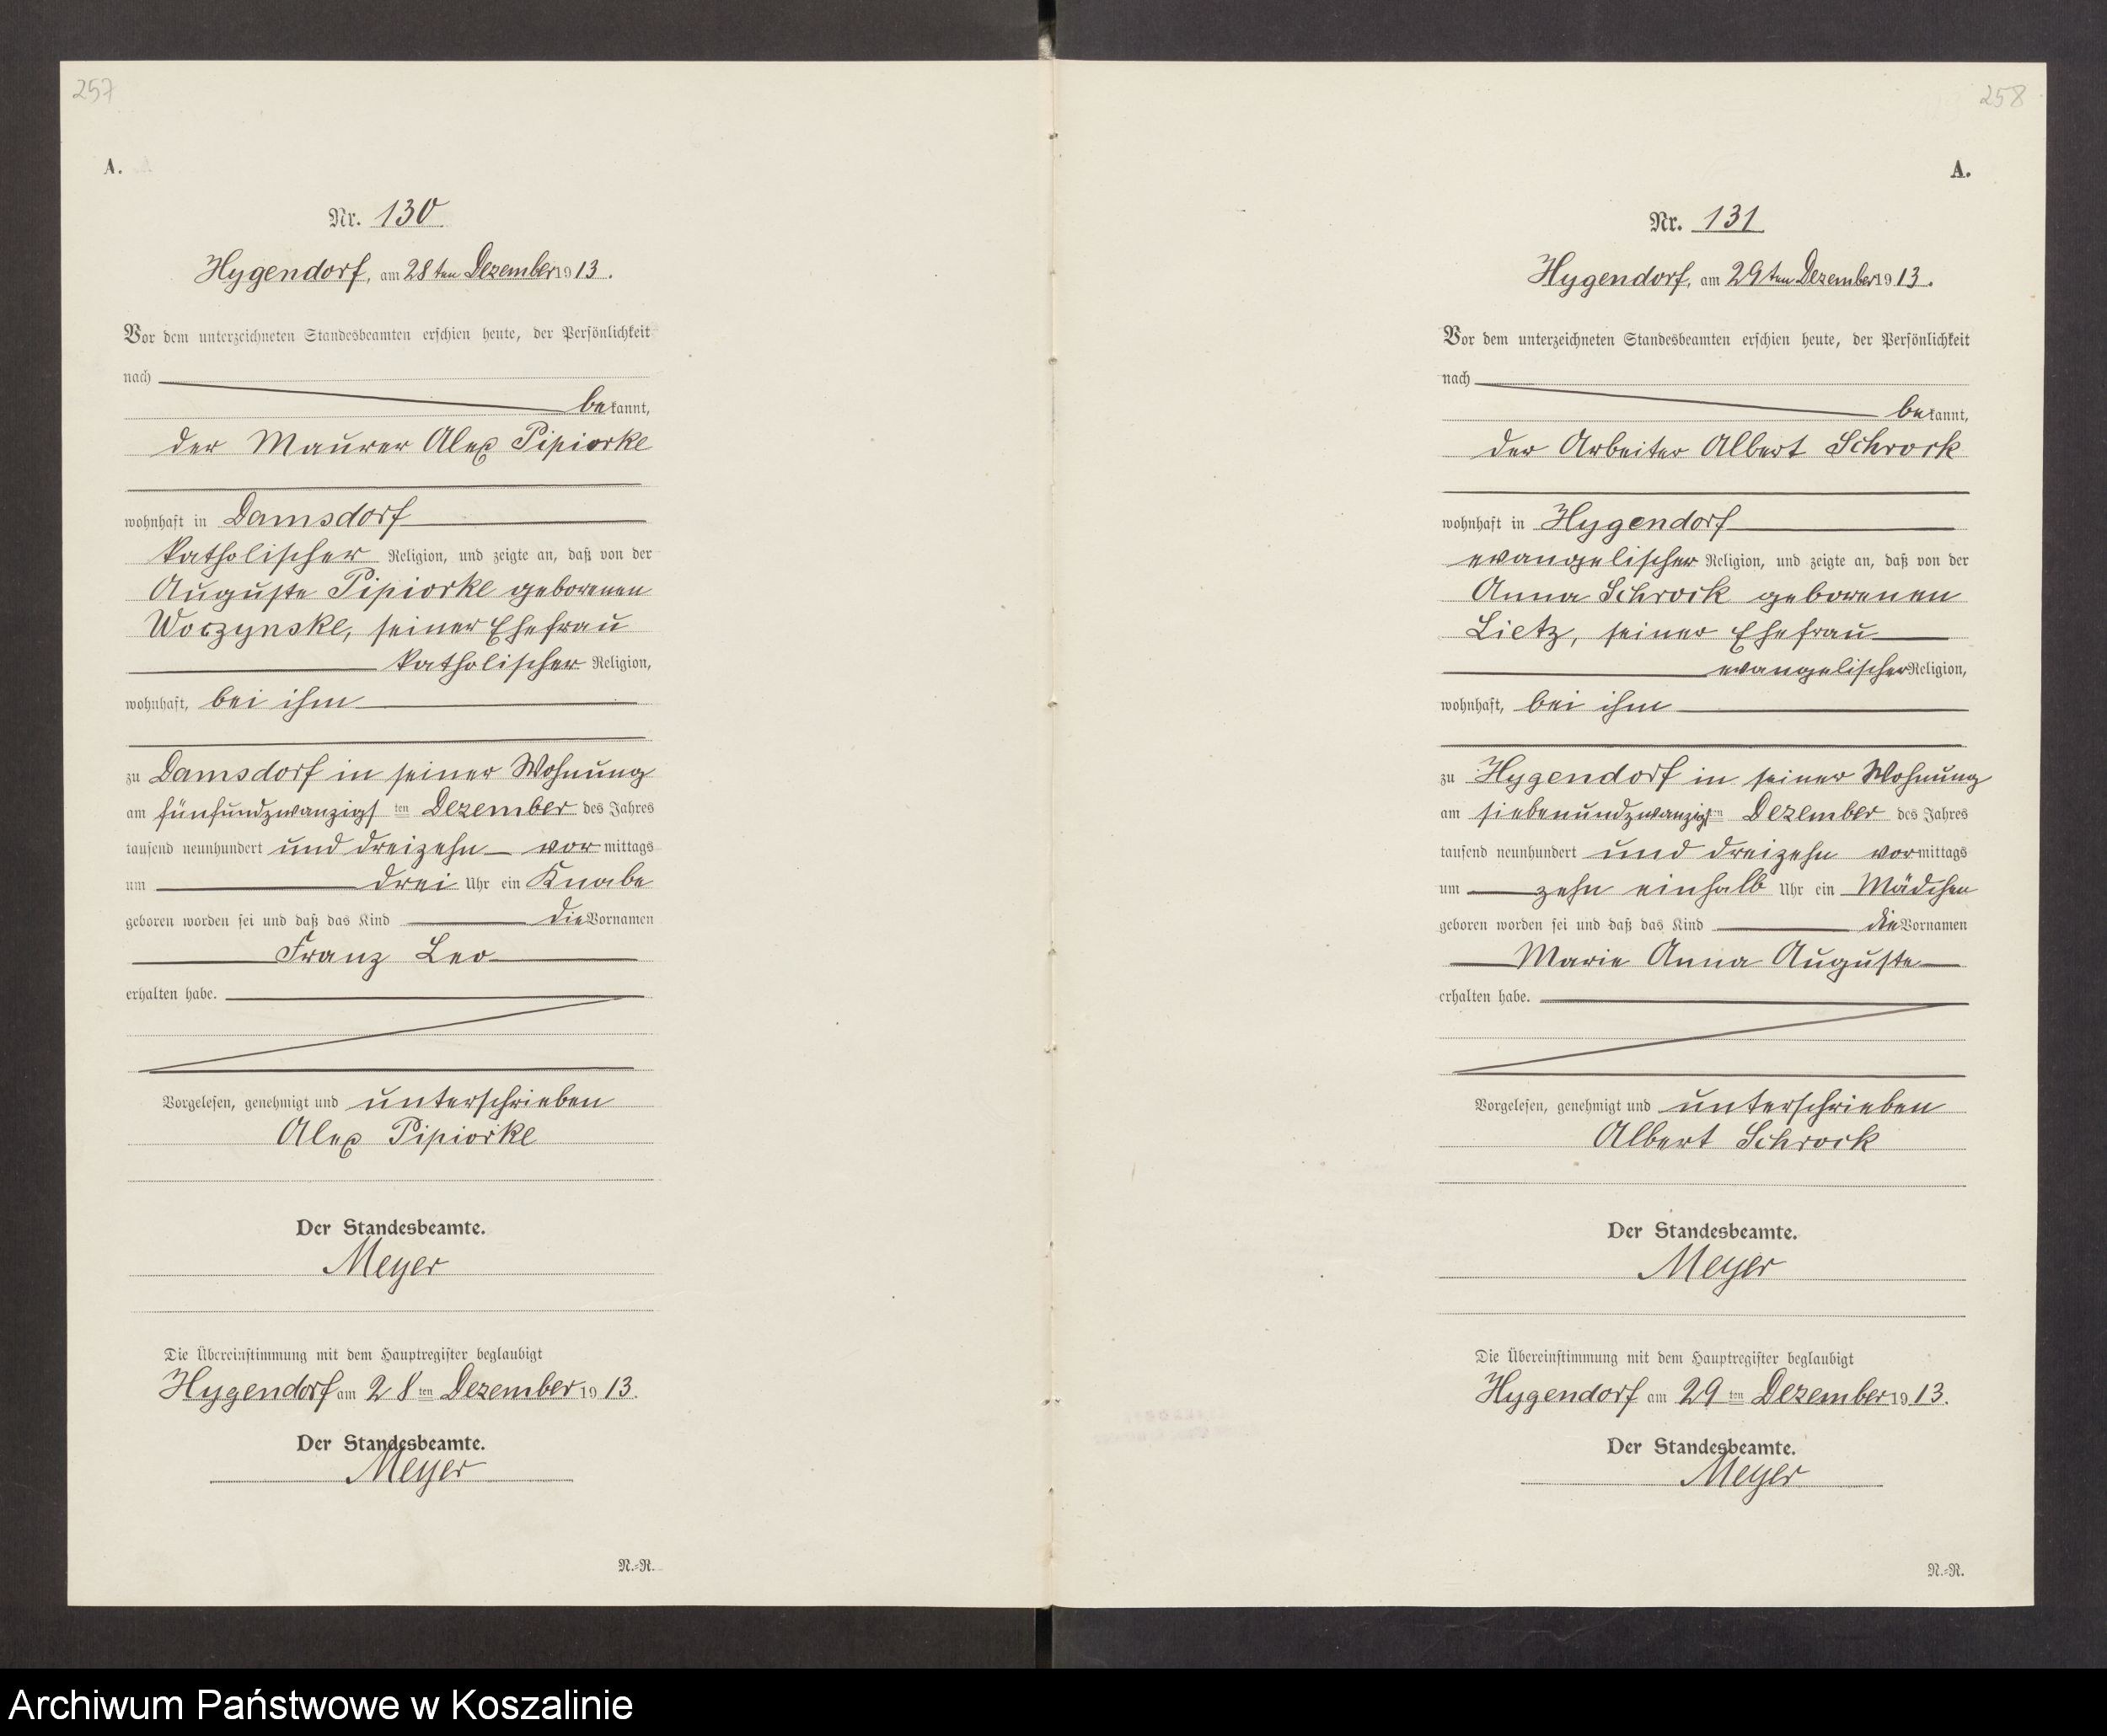 257
A.
Nr. 130
Hygendorf, am 28ten Dezember 1913.
Vor dem unterzeichneten Standesbeamten erschien heute, der Persönlichkeit
nach
bekannt,
der Maurer Alex Pipiorke
wohnhaft in Damsdorf
katholischer Religion, und zeigte an, daß von der
Auguste Pipiorke geborenen
Woczynske, seiner Ehefrau
katholischer Religion,
wohnhaft, bei ihm
zu Damsdorf in seiner Wohnung
am fünfundzwanzigsten Dezember des Jahres
tausend neunhundert und dreizehn vormittags
um drei Uhr ein Knabe
geboren worden sei und daß das Kind die Vornamen
Franz Leo
erhalten habe.
Vorgelesen, genehmigt und unterschrieben
Alex Pipiorke
Der Standesbeamte.
Meyer
Die Übereinstimmung mit dem Hauptregister beglaubigt
Hygendorf am 28ten Dezember 1913.
Der Standesbeamte.
Meyer
N.=R.
258
A.
Nr. 131
Hygendorf, am 29ten Dezember 1913.
Vor dem unterzeichneten Standesbeamten erschien heute, der Persönlichkeit
nach
bekannt,
der Arbeiter Albert Schrock
wohnhaft in Hygendorf
evangelischer Religion, und zeigte an, daß von der
Anna Schrock geborenen
Lietz, seiner Ehefrau
evangelischer Religion,
wohnhaft, bei ihm
zu Hygendorf in seiner Wohnung
am siebenundzwanzigsten Dezember des Jahres
tausend neunhundert und dreizehn vormittags
um zehn einhalb Uhr ein Mädchen
geboren worden sei und daß das Kind die Vornamen
Marie Anna Auguste
erhalten habe.
Vorgelesen, genehmigt und unterschrieben
Albert Schrock
Der Standesbeamte.
Meyer
Die Übereinstimmung mit dem Hauptregister beglaubigt
Hygendorf am 29ten Dezember 1913.
Der Standesbeamte.
Meyer
N.=R.
Archiwum Państwowe w Koszalinie